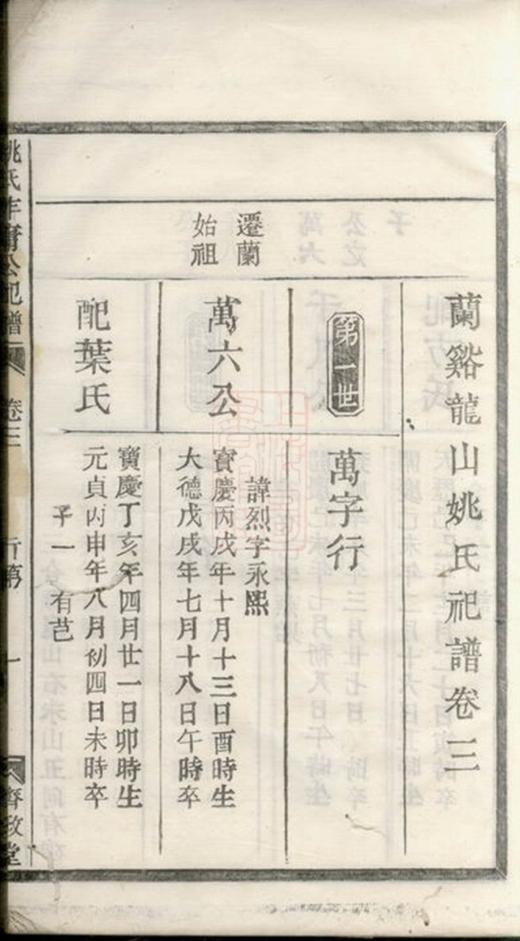 蘭谿龍山姚氏祀譜卷三
第一世
萬字行
遷蘭
始祖
萬六公
諱烈字永熙
寶慶丙戌年十月十三日酉時生
大德戊戌年七月十八日午時卒
配葉氏
寶慶丁亥年四月廿一日卯時生
元貞丙申年八月初四日未時卒
子一 有芑
姚氏 公祀譜
卷三
行第 一
齊政堂